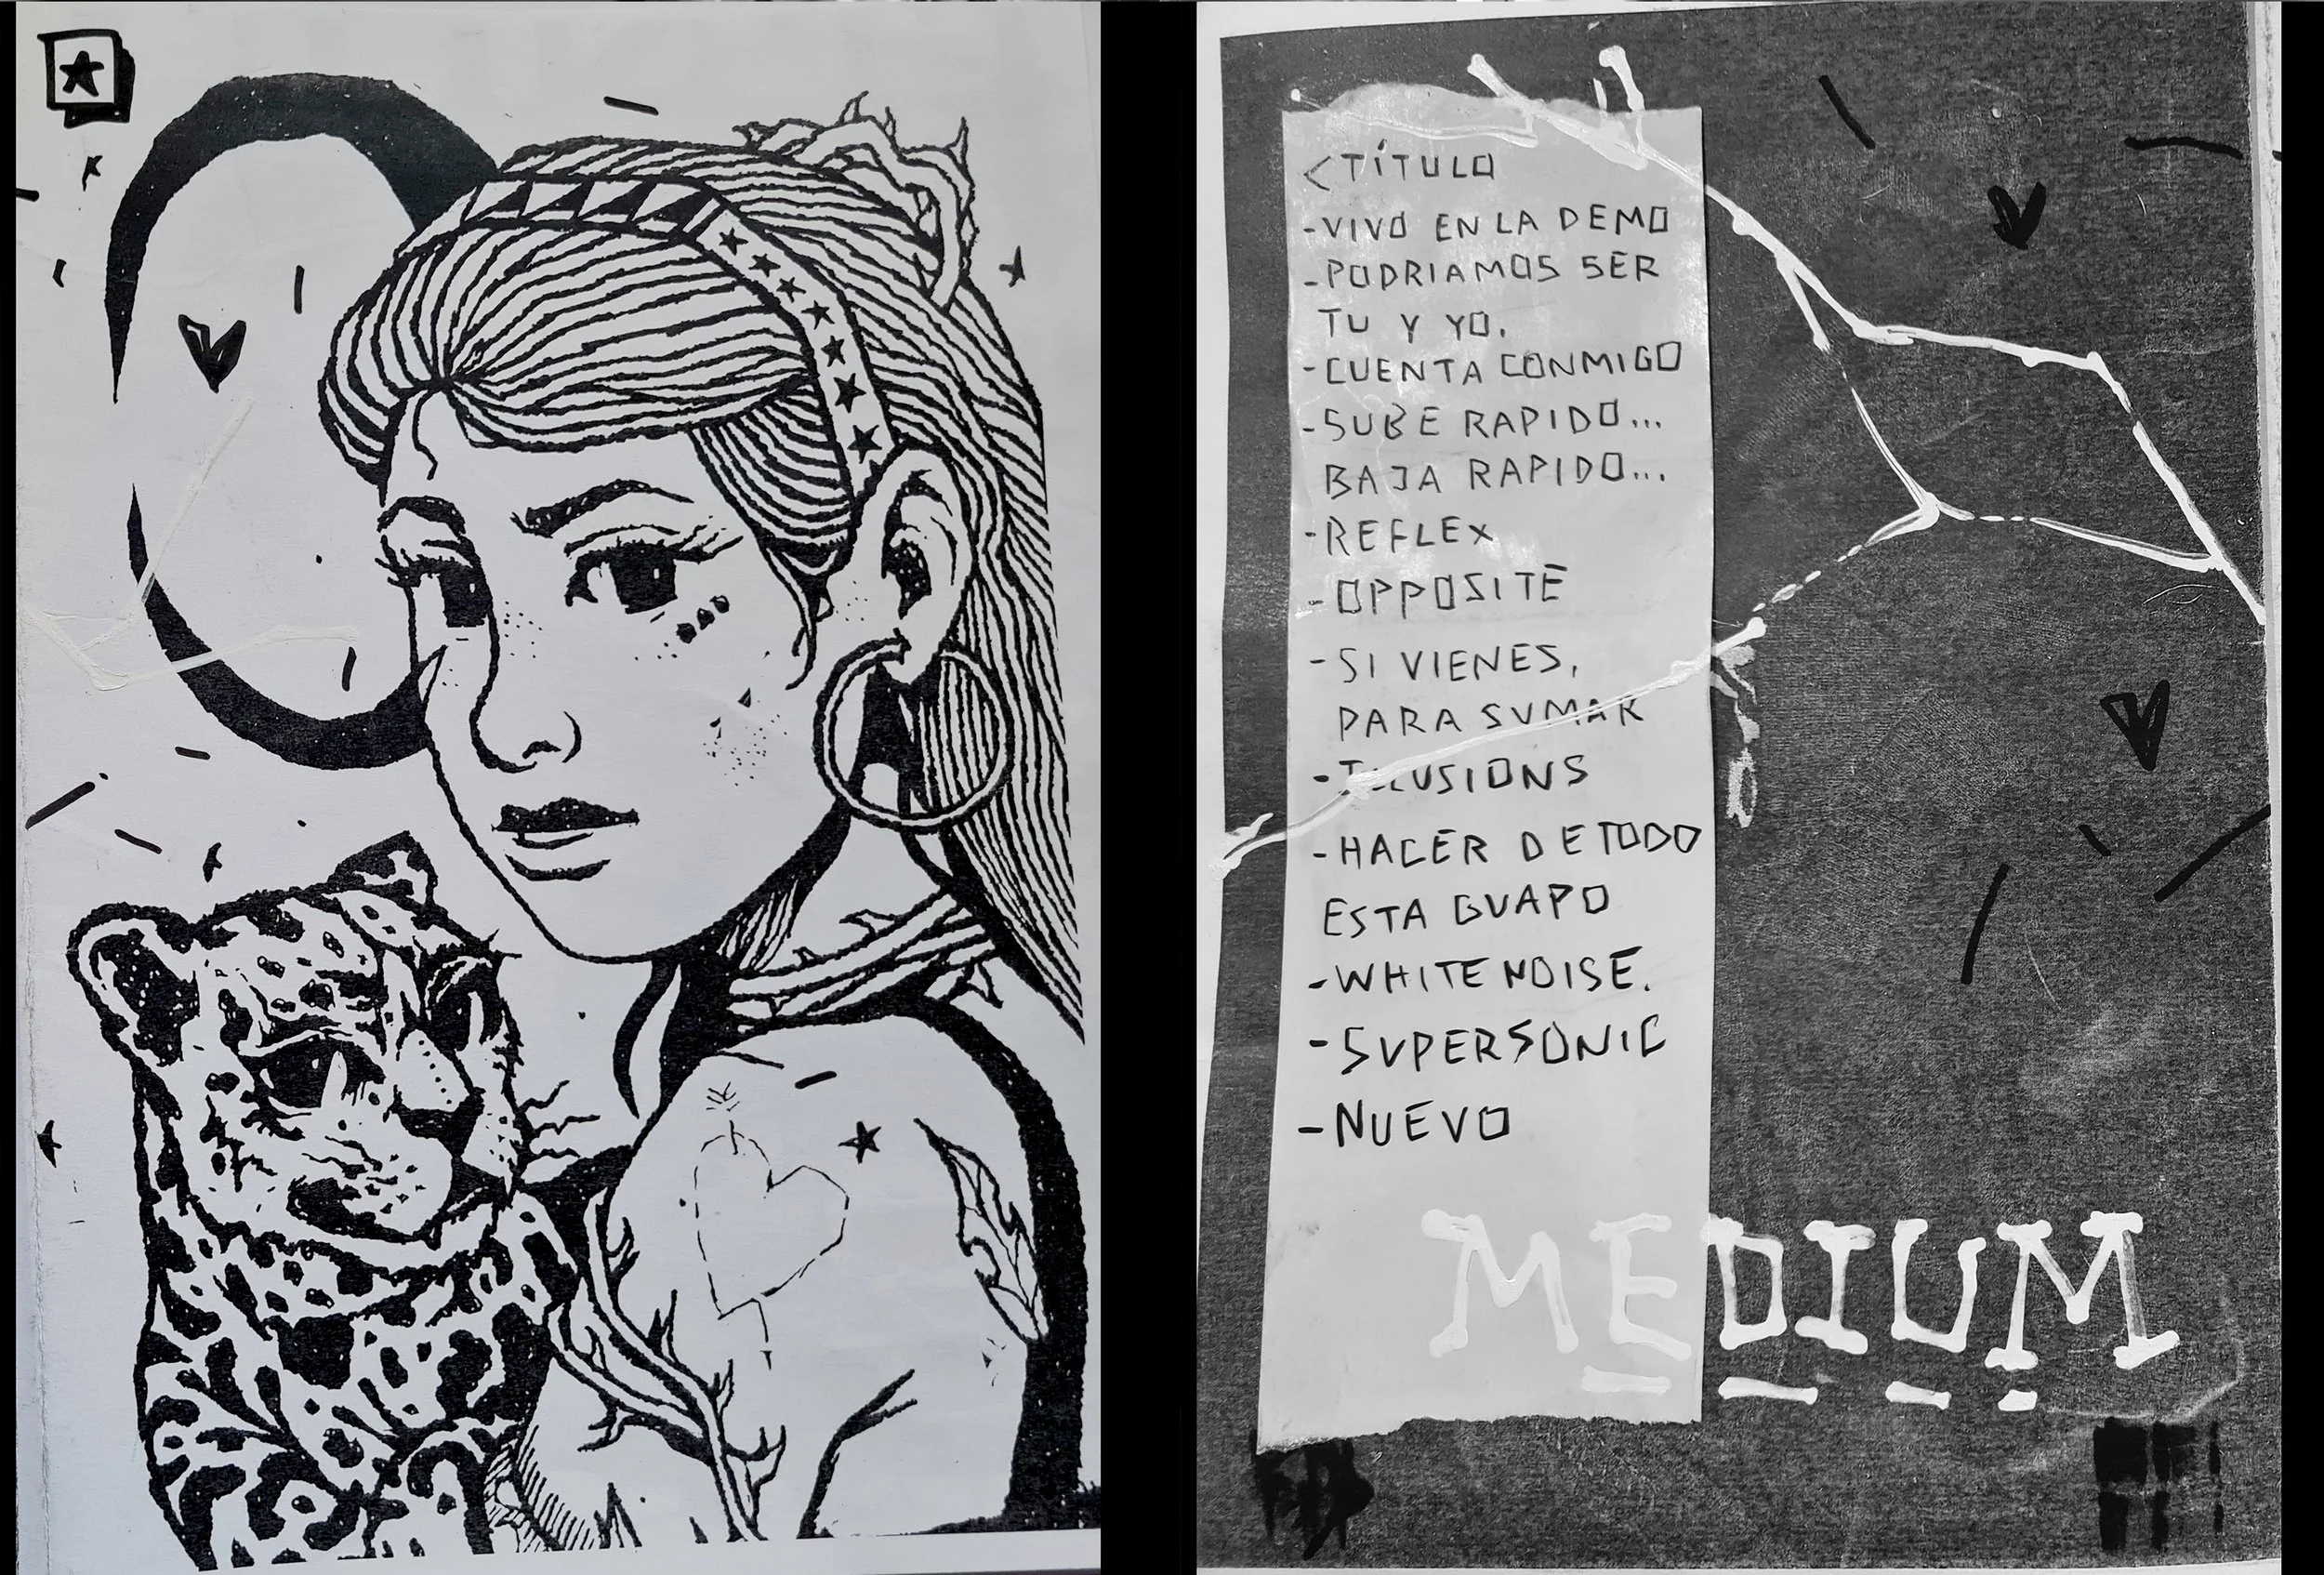 <TÍTULO
-VIVO EN LA DEMO
-PODRIAMOS SER
TU Y YO.
-CUENTA CONMIGO
-SUBE RAPIDO...
BAJA RAPIDO...
-REFLEX
-OPPOSITE
-SI VIENES,
PARA SUMAR
-ILUSIONS
-HACER DE TODO
ESTA GUAPO
-WHITE NOISE.
-SUPERSONIC
-NUEVO
MEDIUM